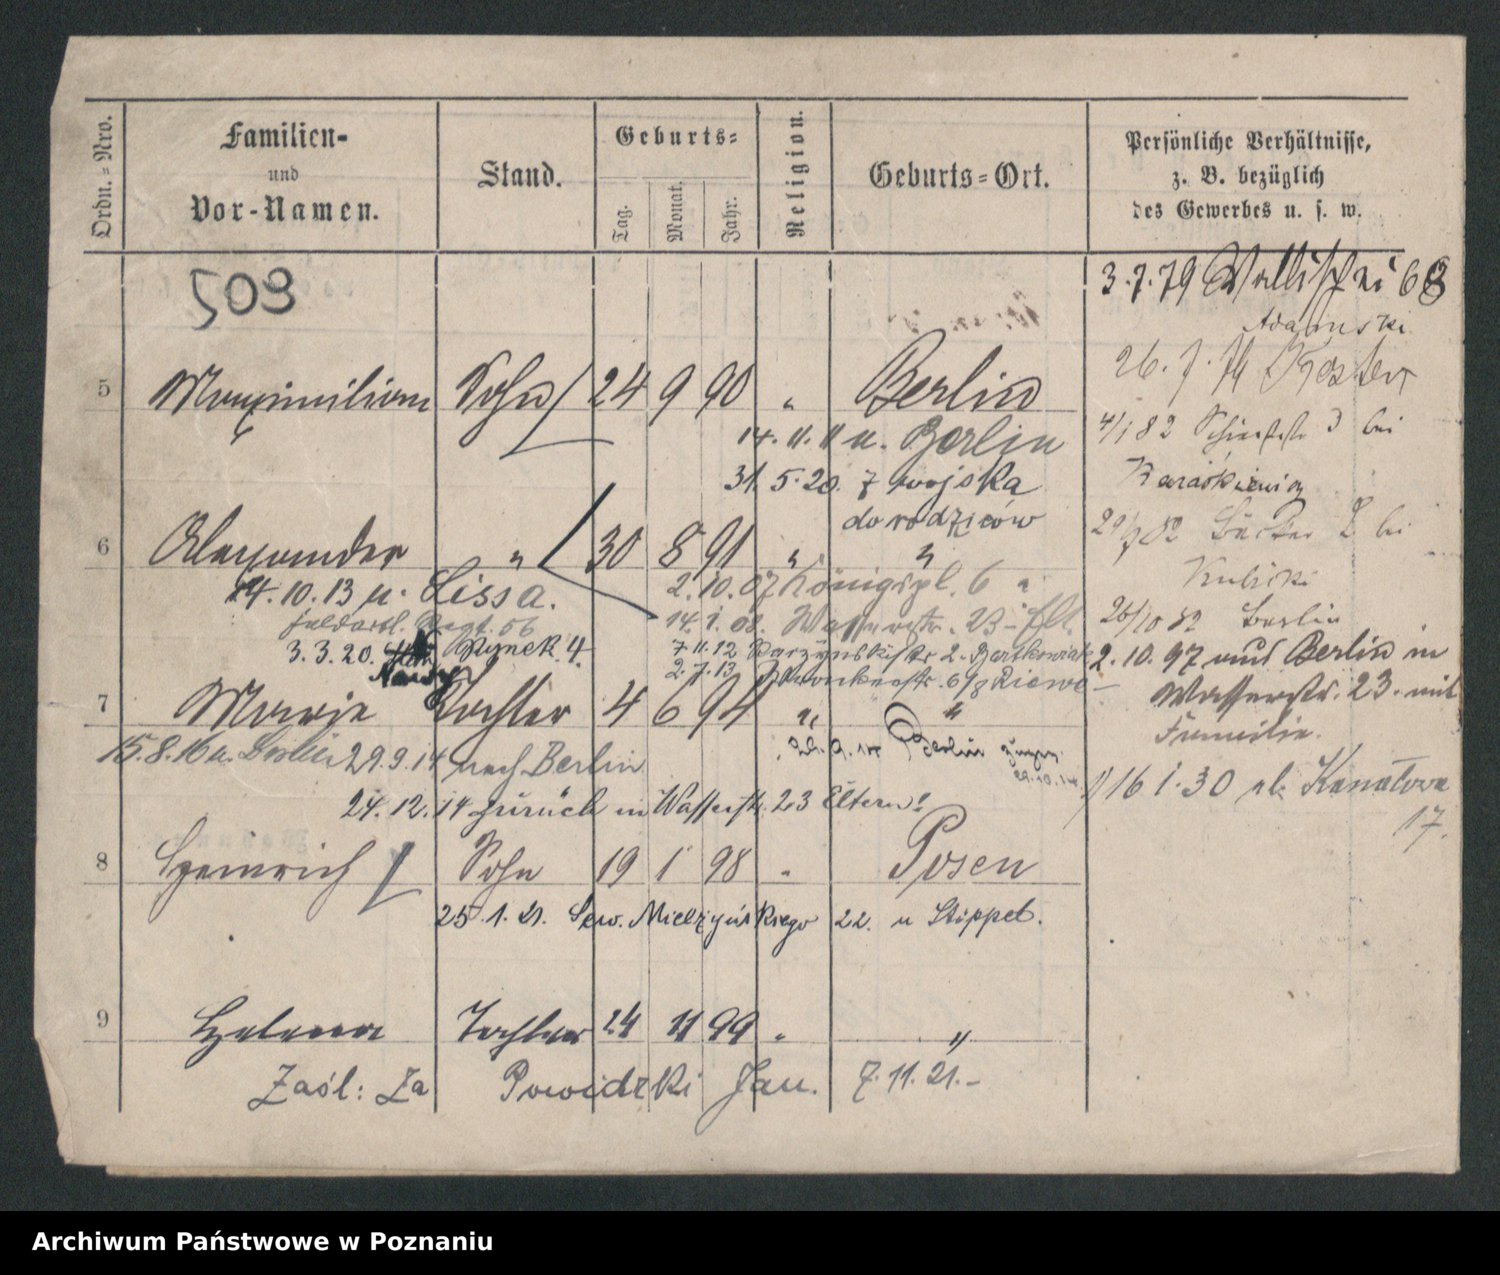 Ordn.=Nro.
Familien-
und
Vor-Namen.
Stand.
Geburts=
Tag.
Monat.
Jahr.
Religion.
Geburts=Ort.
Persönliche Verhältnisse,
z. B. bezüglich
des Gewerbes u. s. w.
509
3.7.79 Wallischei 68
Adamski
26.
5 Maximilian Sohn 24 9 90 " Berlin
14. 11. 11 u. Berlin
4/1 82 bei
31. 5. 20. z wojska
do rodziców
6 Alexander " 30 8 91 " "
82 bei
14. 10. 13 u. Lissa. 2. 10. 07 Königspl. 6
Kubicki
Feldartl. Regt. 56 14. 1. 08. Wasserstr. 23 - Elt.
26/10 82 Berlin
3. 3. 20. Rynek 4. 7 11. 12 2. Bartkowiak
2. 10. 97 aus Berlin in
2. 7. 13 6/8
Wasserstr. 23. mit
7 Marie Tochter 4 6 94 " "
Familie.
15. 8. 16 u. Berlin 29. 9. 14 nach Berlin
29. 9. 14 Berlin
29. 10. 14
16 1. 30 Kanałowa
17.
24. 12. 14 zurück in Wasserstr. 23 Eltern
8 Heinrich Sohn 19 1 98 " Posen
25. 1. 21. Sew. Mielżyńskiego 22. u Stippel.
9 Helena Tochter 24 11 99 " "
Zaśl: Za Powidzki Jan. 7. 11. 21. -
Archiwum Państwowe w Poznaniu